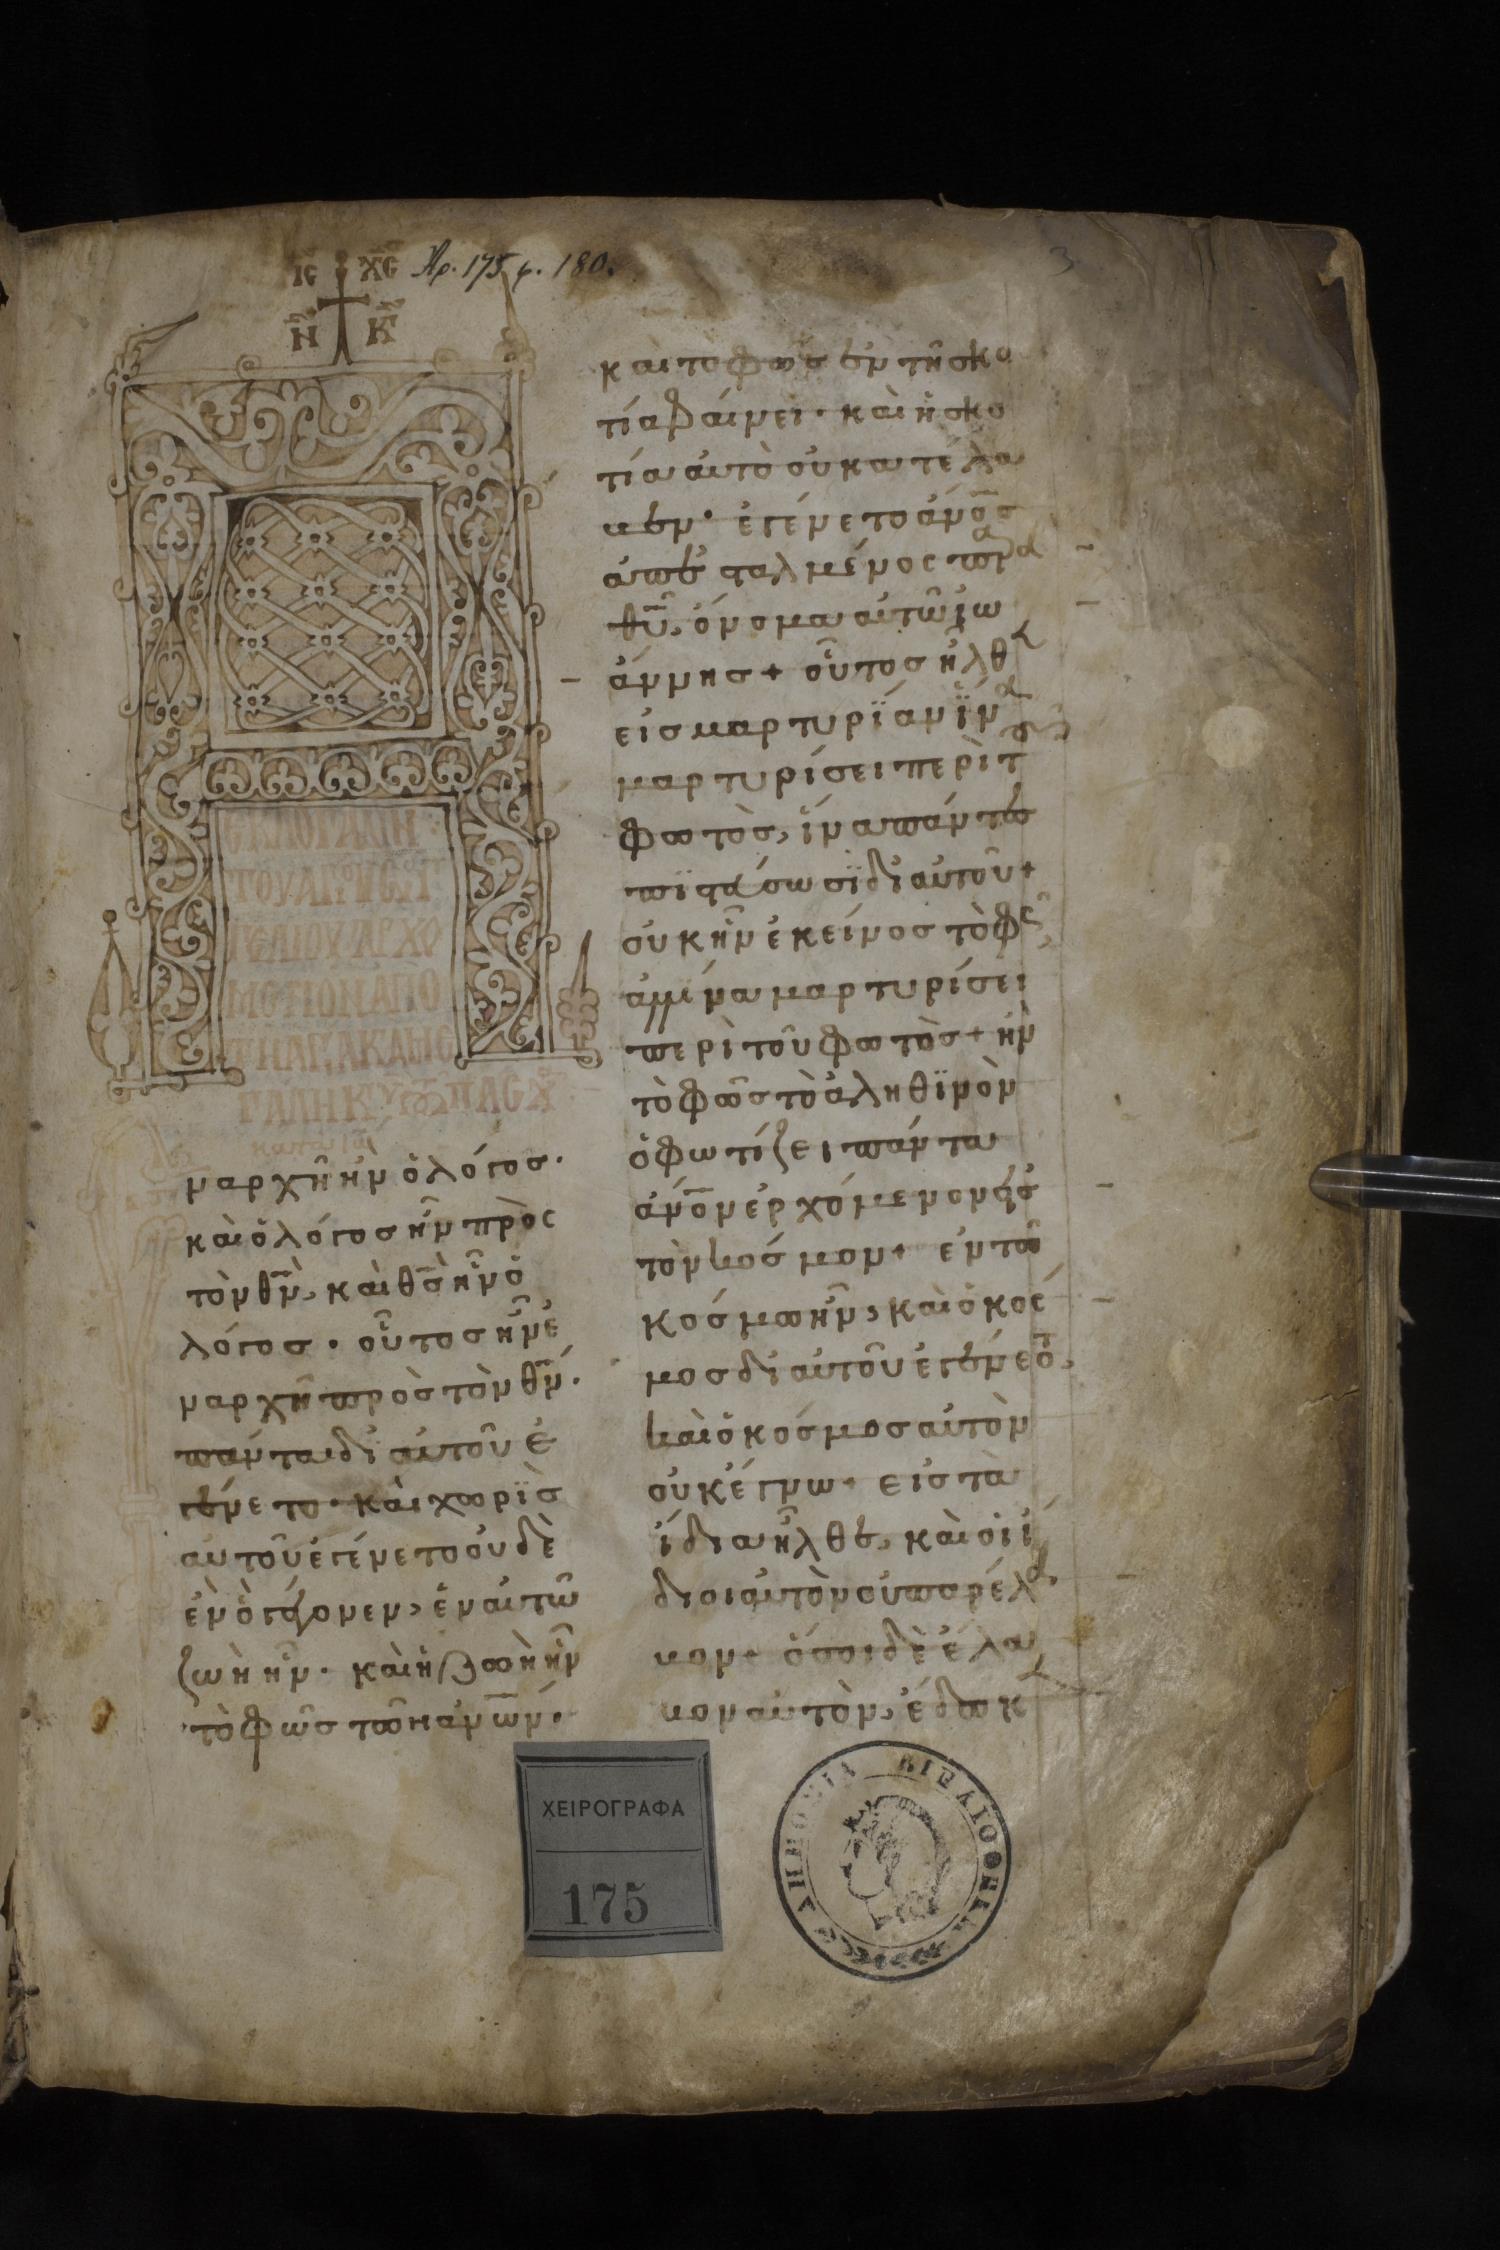 ΙC ΧC Αρ. 175 φ. 180.
3
Ν Κ
ΤΟΥ ΑΓΙΟΥ
ναρχῆ ἦν ὁ λόγος·
καὶ ὁ λόγοσ ἦν πρὸς
τὸν θν, καὶ θσ ἦν ὁ
λόγοσ· οὗτοσ ἦν ἐ
ναρχῆ πρὸσ τὸν θν·
πάντα δι αὐτοῦ ἐ
γένετο· καὶ χωρϊσ
αὐτοῦ ἐγένετο οὐδὲ
ἐν ὃ γέγονεν, ἐν αὐτῶ
ζωὴ ἦν· καὶ ἡ ζωὴ ἦν
τὸ φῶσ τῶν ανων·
καὶ τὸ φῶσ ἐν τῆ σκο
τία φαίνει· καὶ ἡ σκο
τία αὐτὸ οὐ κατέλα
βεν· ἐγένετο ανοσ
ἀπεσταλμένος παρα
θυ, ὄνομα αὐτῶ ϊω
άννησ + οὗτοσ ἦλθ
εἰσ μαρτυρϊαν ϊνα
μαρτυρίσει περὶ τοῦ
φωτὸσ, ἵνα πάντεσ
πϊστεύσωσϊ δι αὐτοῦ +
οὐκ ἦν ἐκεῖνοσ τὸ φῶς,
ἀλλ ἵνα μαρτυρίσει
περὶ τοῦ φωτὸσ + ἦν
τὸ φῶσ τὸ ἀληθϊνὸν
ὃ φωτίζει πάντα
ανον ἐρχόμενον εἰσ
τὸν κόσμον + ἐν τῶ
κόσμω ἦν, καὶ ὁ κόσ
μοσ δι αὐτοῦ ἐγένετο,
καὶ ὁ κόσμοσ αὐτὸν
οὐκ ἔγνω + εἰσ τὰ
ἴδια ἦλθε, καὶ οἱ ἴ
διοι αὐτὸν οὐ παρέλα
βον + ὅσοι δὲ ἔλα
βον αὐτὸν, ἔδωκ
ΧΕΙΡΟΓΡΑΦΑ
175
ΔΗΜΟΣΙΑ ΒΙΒΛΙΟΘΗΚΗ